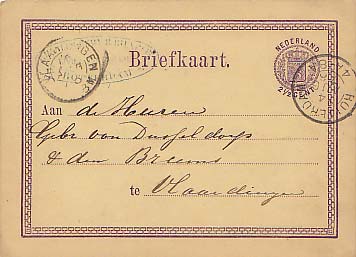 NEDERLAND
2½ CENT
VLAARDINGEN
Briefkaart.
Aan de Heeren
Gebr van
& den
te Vlaardingen